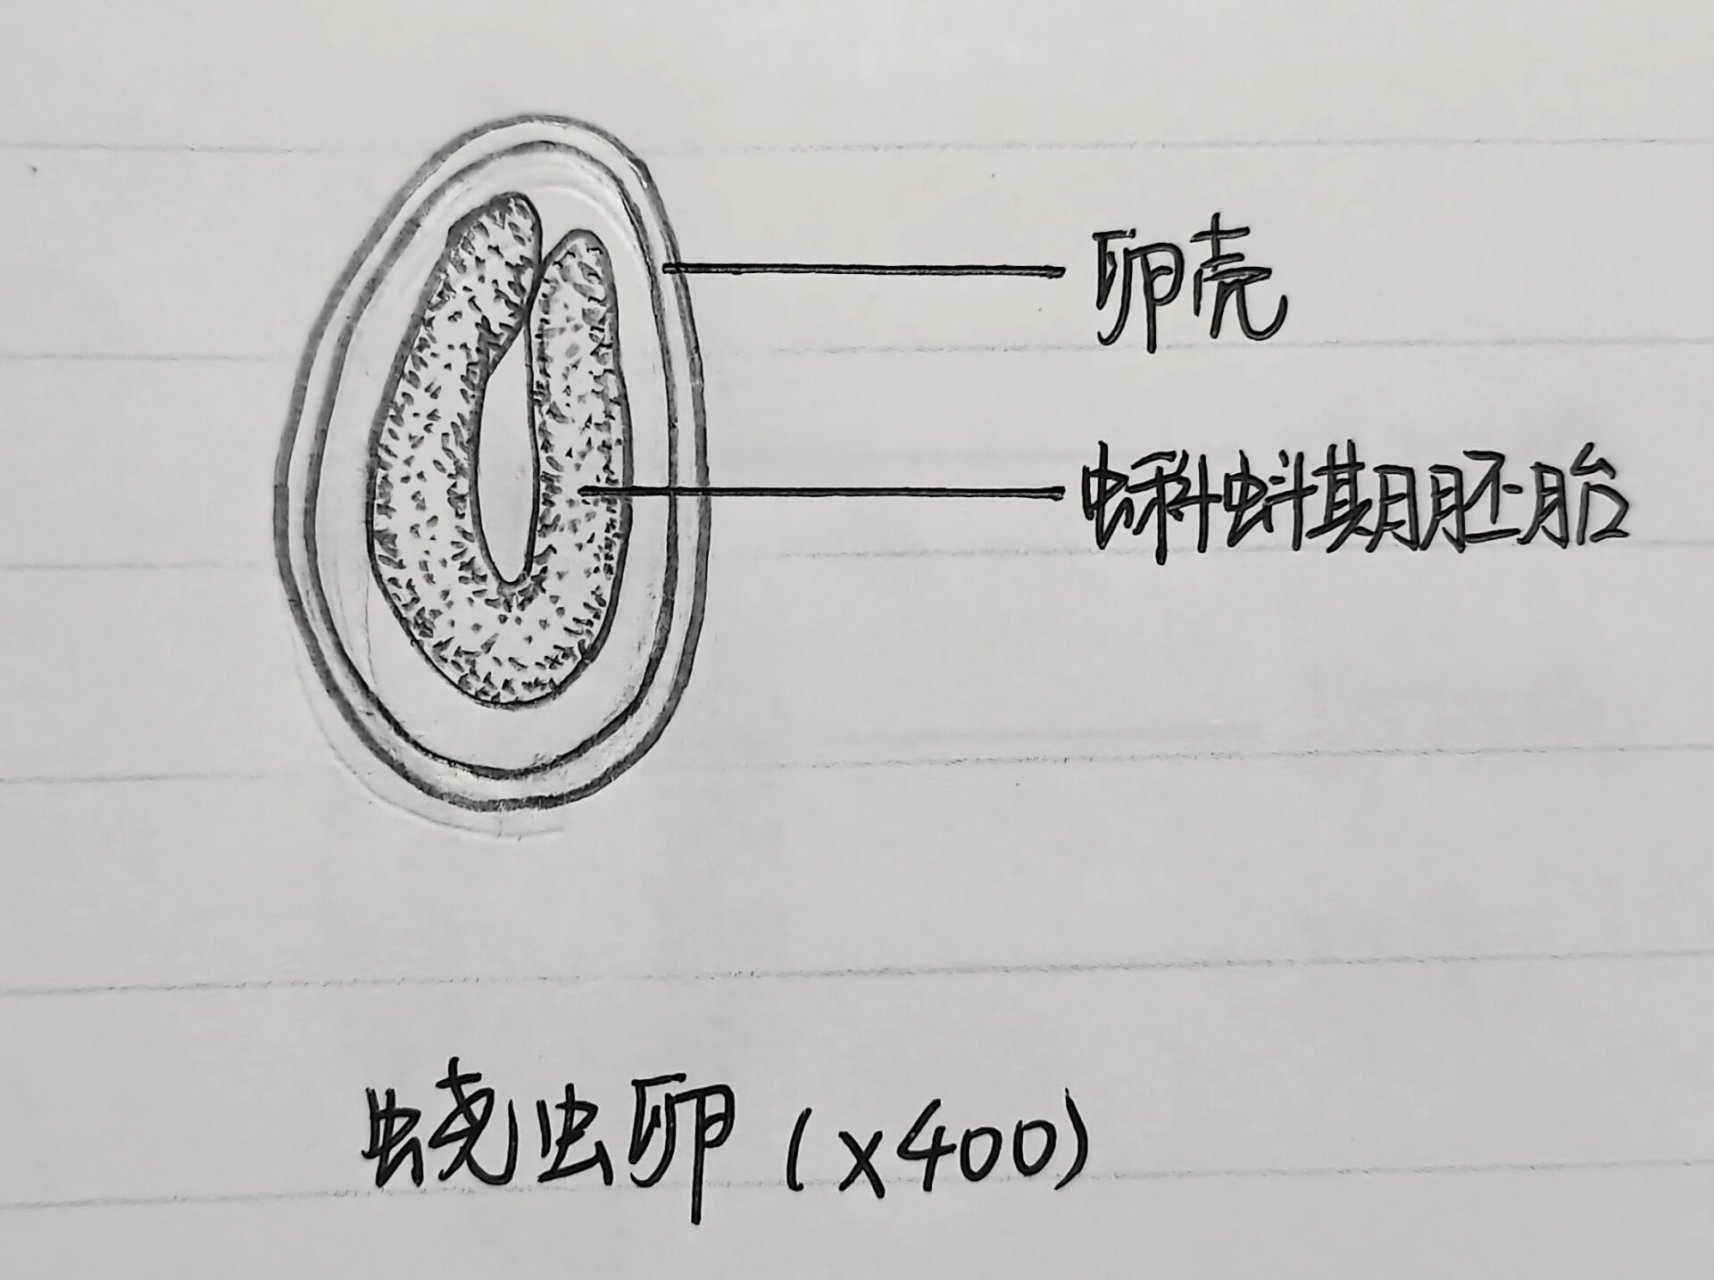 卵壳
蝌蚪期胚胎
蛲虫卵(×400)